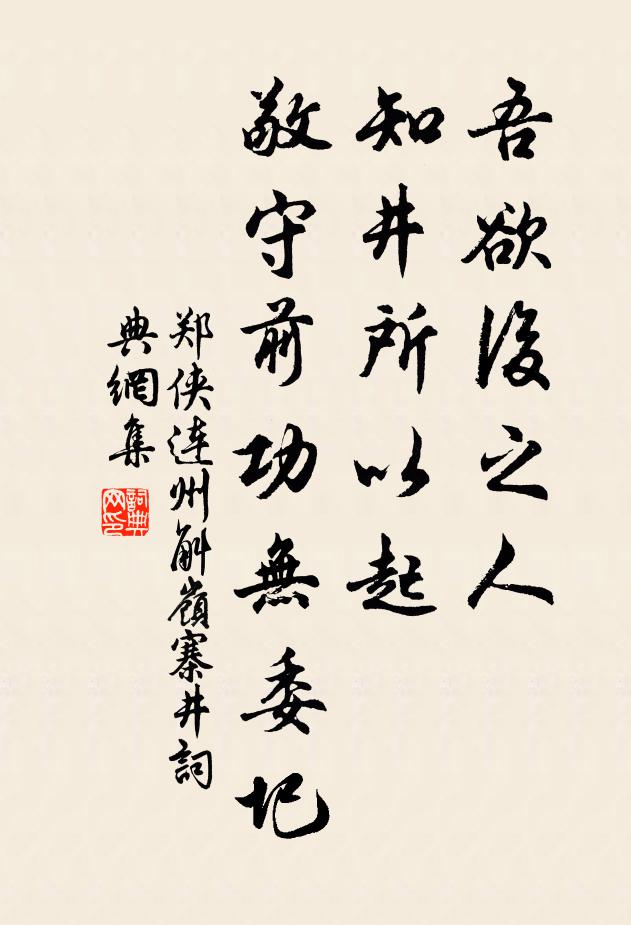 吾欲後之人
知井所以起
敬守前功無委圮
郑侠連州斛嶺寨井詞
典網集
詞典网印